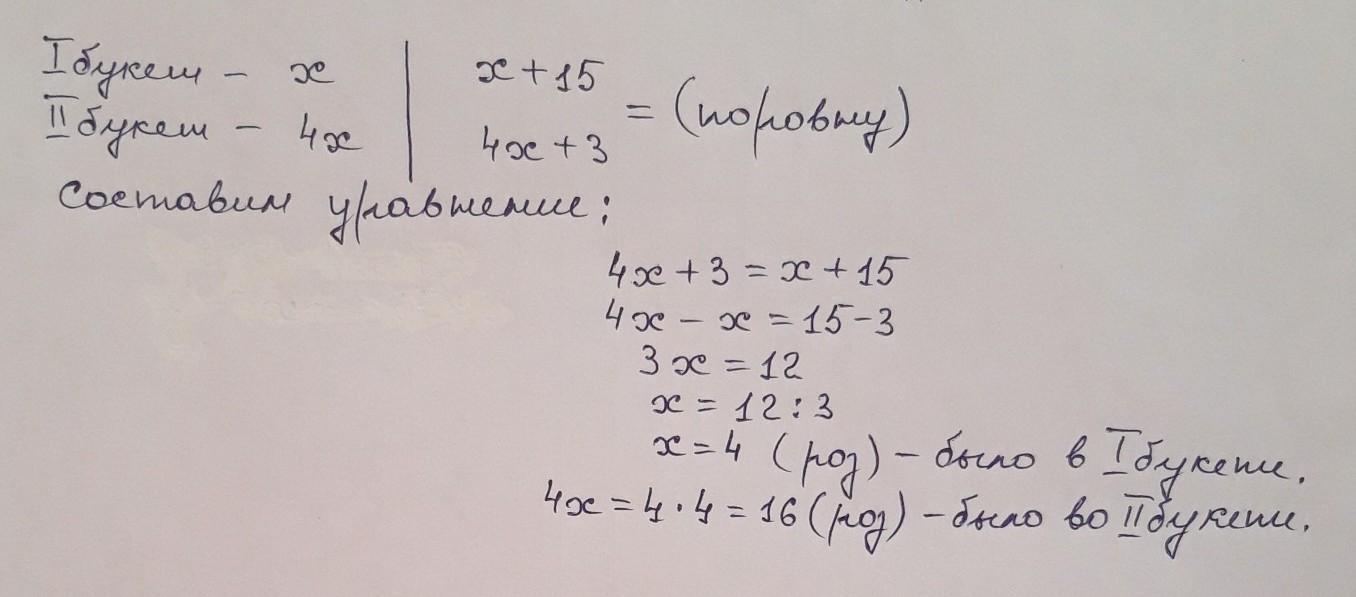 I букет - x | x + 15
= (поровну)
II букет - 4x | 4x + 3
Составим уравнение:
4x + 3 = x + 15
4x - x = 15 - 3
3x = 12
x = 12 : 3
x = 4 (роз) - было в I букете.
4x = 4 · 4 = 16 (роз) - было во II букете.